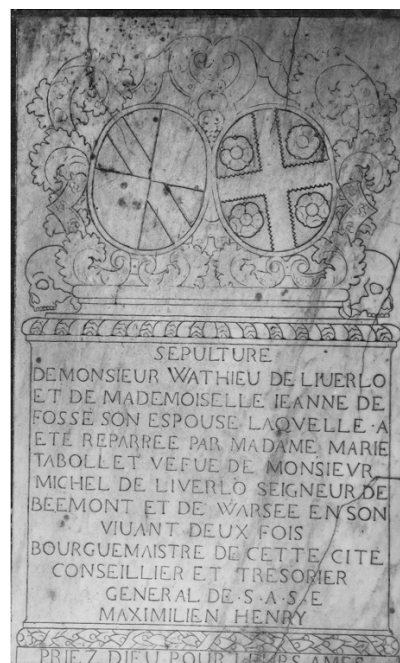 SEPULTURE
DE MONSIEUR WATHIEU DE LIUERLO
ET DE MADEMOISELLE IEANNE DE
FOSSE SON ESPOUSE LAQVELLE · A
ETE REPARREE PAR MADAME MARIE
TABOLLET VEFUE DE MONSIEVR
MICHEL DE LIVERLO SEIGNEUR DE
BEEMONT ET DE WARSEE EN SON
VIUANT DEUX FOIS
BOURGUEMAISTRE DE CETTE CITÉ
CONSEILLIER ET TRESORIER
GENERAL DE · S · A · S · E
MAXIMILIEN HENRY
PRIEZ DIEU POUR LEURS AMES